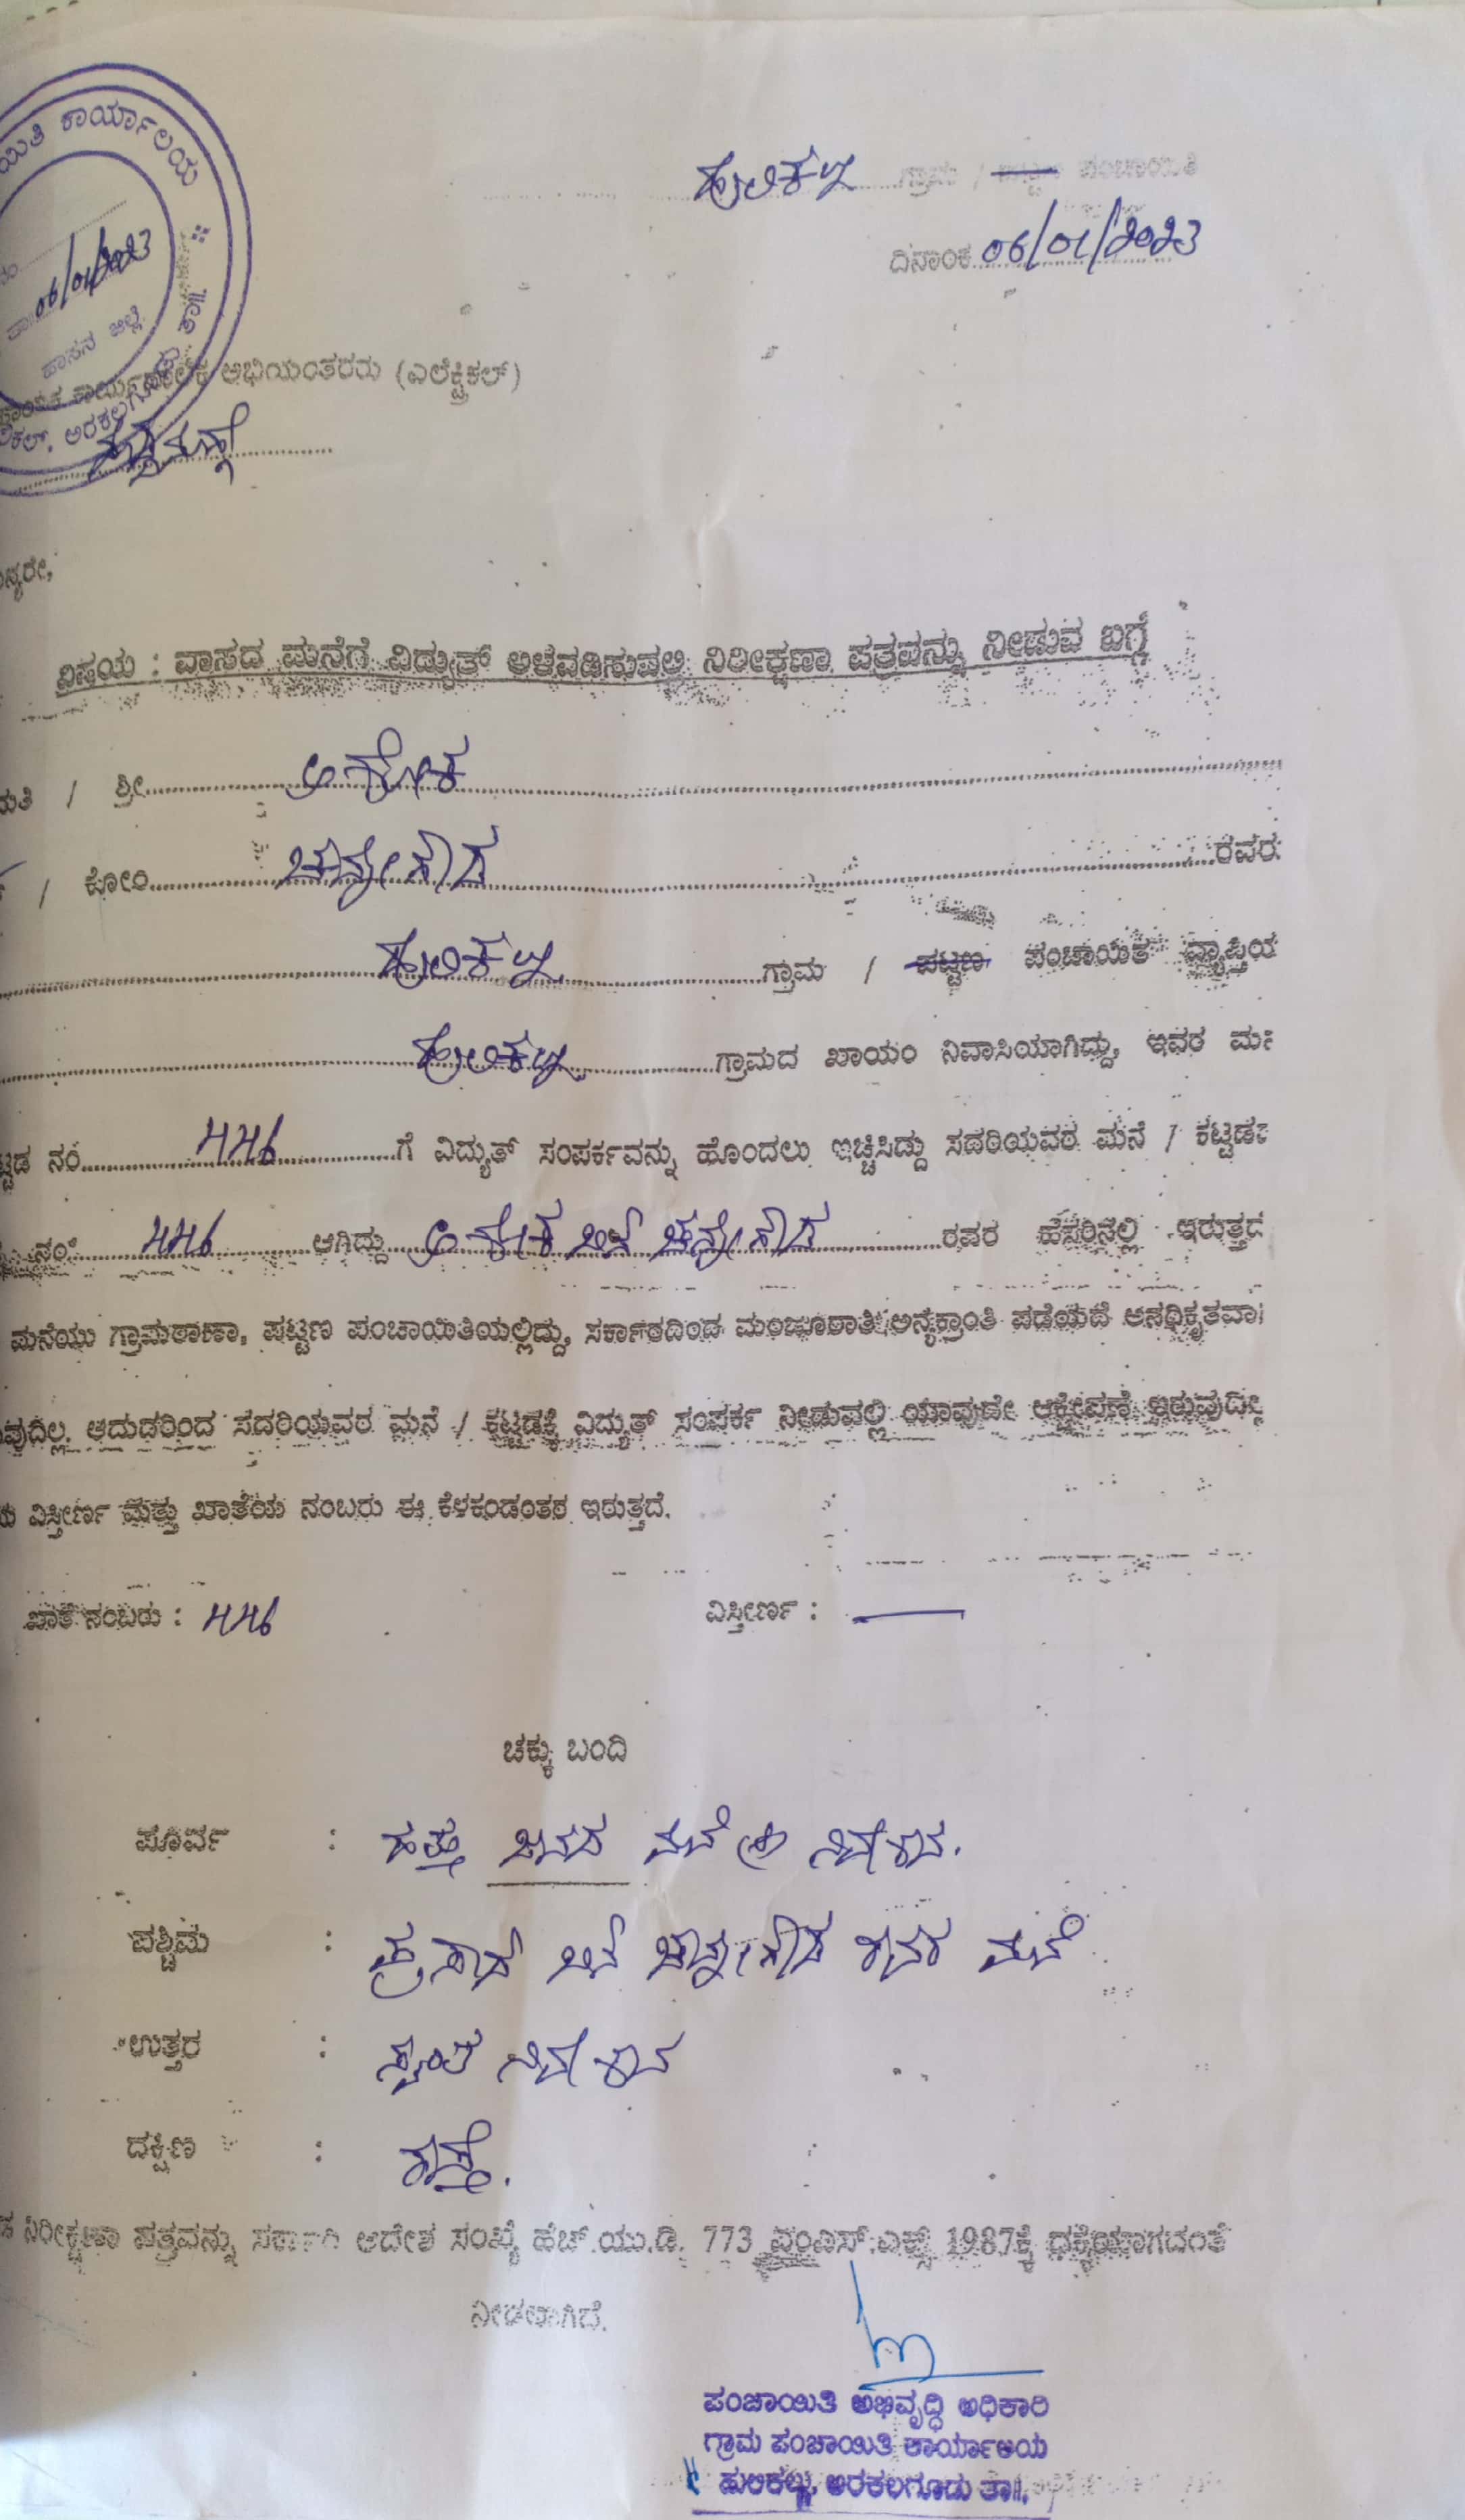 ಕಾರ್ಯಾಲಯ
ಹುಲಿಕಲ್ಲು ಗ್ರಾಮ / ಪಂಚಾಯಿತಿ
ದಿನಾಂಕ 06/01/2023
06/01/2023
ಹಾಸನ ಜಿಲ್ಲೆ
ಅಭಿಯಂತರರು (ಎಲೆಕ್ಟ್ರಿಕಲ್)
ವಿಸಯ : ವಾಸದ ಮನೆಗೆ ವಿದ್ಯುತ್ ಅಳವಡಿಸುವಲ್ಲಿ ನಿರೀಕ್ಷಣಾ ಪತ್ರವನ್ನು ನೀಡುವ ಬಗ್ಗೆ
ಮತಿ / ಶ್ರೀ ಅಶೋಕ
/ ಕೋಂ ಚನ್ನೇಗೌಡ ರವರ
ಹುಲಿಕಲ್ಲು ಗ್ರಾಮ / ಪಟ್ಟಣ ಪಂಚಾಯಿತಿ ವ್ಯಾಪ್ತಿಯ
ಹುಲಿಕಲ್ಲು ಗ್ರಾಮದ ಖಾಯಂ ನಿವಾಸಿಯಾಗಿದ್ದು, ಇವರ
ನಂ 446 ಗೆ ವಿದ್ಯುತ್ ಸಂಪರ್ಕವನ್ನು ಹೊಂದಲು ಇಚ್ಛಿಸಿದ್ದು ಸದರಿಯವರ ಮನೆ / ಕಟ್ಟಡ
ನಂ 446 ಆಗಿದ್ದು ಅಶೋಕ ಬಿನ್ ಚನ್ನೇಗೌಡ ರವರ ಹೆಸರಿನಲ್ಲಿ ಇರುತ್ತದೆ
ಮನೆಯು ಗ್ರಾಮಠಾಣಾ, ಪಟ್ಟಣ ಪಂಚಾಯಿತಿಯಲ್ಲಿದ್ದು, ಸರ್ಕಾರದಿಂದ ಮಂಜೂರಾತಿ ಅನ್ಯಕ್ರಾಂತಿ ಪಡೆಯದೆ ಅನಧಿಕೃತವಾ
ವುದಿಲ್ಲ. ಆದುದರಿಂದ ಸದರಿಯವರ ಮನೆ / ಕಟ್ಟಡಕ್ಕೆ ವಿದ್ಯುತ್ ಸಂಪರ್ಕ ನೀಡುವಲ್ಲಿ ಯಾವುದೇ ಆಕ್ಷೇಪಣೆ ಇರುವುದಿಲ್ಲ
ವಿಸ್ತೀರ್ಣ ಮತ್ತು ಖಾತೆಯ ನಂಬರು ಈ ಕೆಳಕಂಡಂತಹ ಇರುತ್ತದೆ.
ಖಾತೆ ನಂಬರು : 446 ವಿಸ್ತೀರ್ಣ : —
ಚಕ್ಕು ಬಂದಿ
ಪೂರ್ವ : ಮನೆ ನಿವೇಶನ.
ಪಶ್ಚಿಮ : ಪ್ರಸಾದ್ ಬಿನ್ ಚನ್ನೇಗೌಡ ರವರ ಮನೆ
ಉತ್ತರ : ಸ್ವಂತ ನಿವೇಶನ
ದಕ್ಷಿಣ : ರಸ್ತೆ.
ನಿರೀಕ್ಷಣಾ ಪತ್ರವನ್ನು ಸರ್ಕಾರಿ ಆದೇಶ ಸಂಖ್ಯೆ ಹೆಚ್.ಯು.ಡಿ. 773 ಎಂಎಸ್.ಎಕ್ಸ್ 1987ಕ್ಕೆ ಧಕ್ಕೆಯಾಗದಂತೆ
ನೀಡಲಾಗಿದೆ.
ಪಂಚಾಯಿತಿ ಅಭಿವೃದ್ಧಿ ಅಧಿಕಾರಿ
ಗ್ರಾಮ ಪಂಚಾಯಿತಿ ಕಾರ್ಯಾಲಯ
ಹುಲಿಕಲ್ಲು, ಅರಕಲಗೂಡು ತಾ||.